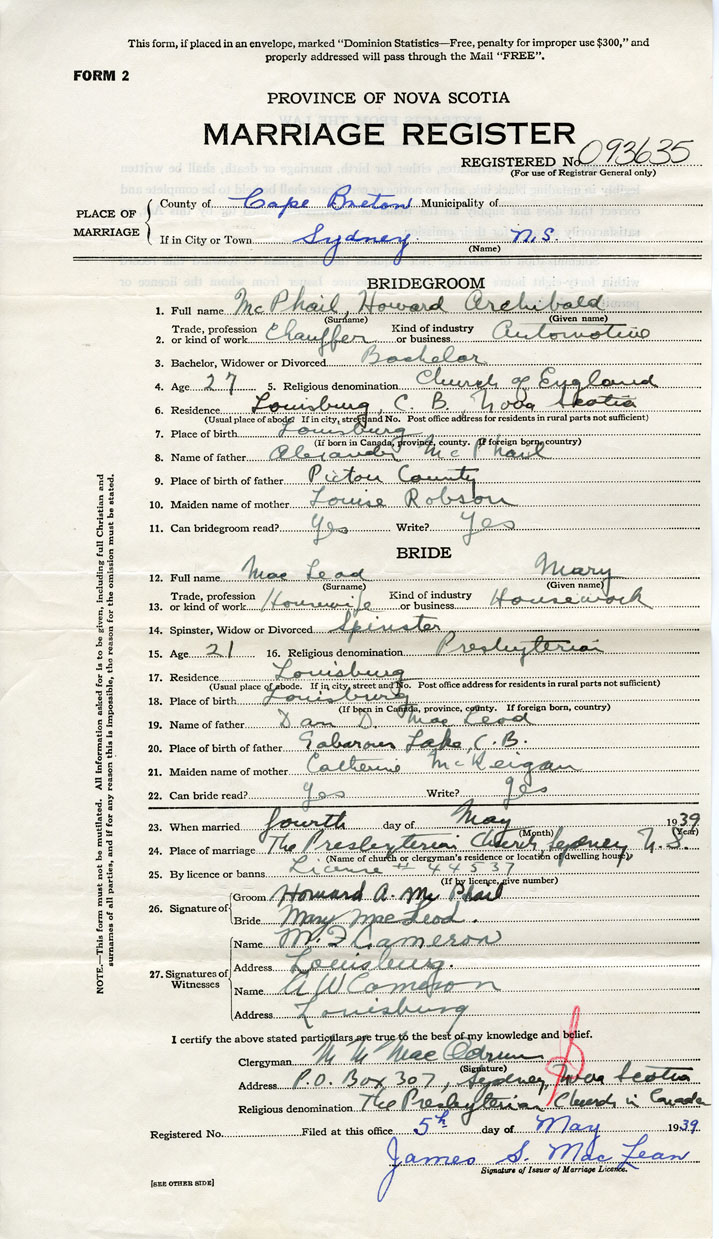 This form, if placed in an envelope, marked "Dominion Statistics—Free, penalty for improper use $300," and
properly addressed will pass through the Mail "FREE".
FORM 2
PROVINCE OF NOVA SCOTIA
MARRIAGE REGISTER
REGISTERED No. 093635
(For use of Registrar General only)
PLACE OF MARRIAGE
County of Cape Breton Municipality of
If in City or Town Sydney N.S.
(Name)
BRIDEGROOM
1. Full name McPhail, Howard Archibald
(Surname) (Given name)
2. Trade, profession or kind of work Chauffer Kind of industry or business Automotive
3. Bachelor, Widower or Divorced Bachelor
4. Age 27 5. Religious denomination Church of England
6. Residence Louisburg, C. B, Nova Scotia
(Usual place of abode. If in city, street and No. Post office address for residents in rural parts not sufficient)
7. Place of birth Louisburg
(If born in Canada, province, county. If foreign born, country)
8. Name of father Alexander McPhail
9. Place of birth of father Picton County
10. Maiden name of mother Louise Robson
11. Can bridegroom read? Yes Write? Yes
BRIDE
12. Full name MacLeod Mary
(Surname) (Given name)
13. Trade, profession or kind of work Housewife Kind of industry or business Housework
14. Spinster, Widow or Divorced Spinster
15. Age 21 16. Religious denomination Presbyterian
17. Residence Louisburg
(Usual place of abode. If in city, street and No. Post office address for residents in rural parts not sufficient)
18. Place of birth Louisburg
(If born in Canada, province, county. If foreign born, country)
19. Name of father Dan D. MacLeod
20. Place of birth of father Gabarous Lake, C.B.
21. Maiden name of mother Catherine McKeigan
22. Can bride read? Yes Write? Yes
23. When married fourth day of May 1939
(Month) (Year)
24. Place of marriage The Presbyterian Church, Sydney N.S.
(Name of church or clergyman's residence or location of dwelling house)
25. By licence or banns License # 44537
(If by licence, give number)
26. Signature of Groom Howard A. McPhail
Bride Mary MacLeod.
27. Signatures of Witnesses
Name M. F Cameron
Address Louisburg.
Name A W Cameron
Address Louisburg
I certify the above stated particulars are true to the best of my knowledge and belief.
Clergyman
(Signature)
Address P.O. Box 307, Sydney, Nova Scotia
Religious denomination The Presbyterian Church in Canada
Registered No. Filed at this office 5th day of May 1939
James S. MacLean
Signature of Issuer of Marriage Licence.
[SEE OTHER SIDE]
NOTE.—This form must not be mutilated. All information asked for is to be given, including full Christian and
surnames of all parties, and if for any reason this is impossible, the reason for the omission must be stated.